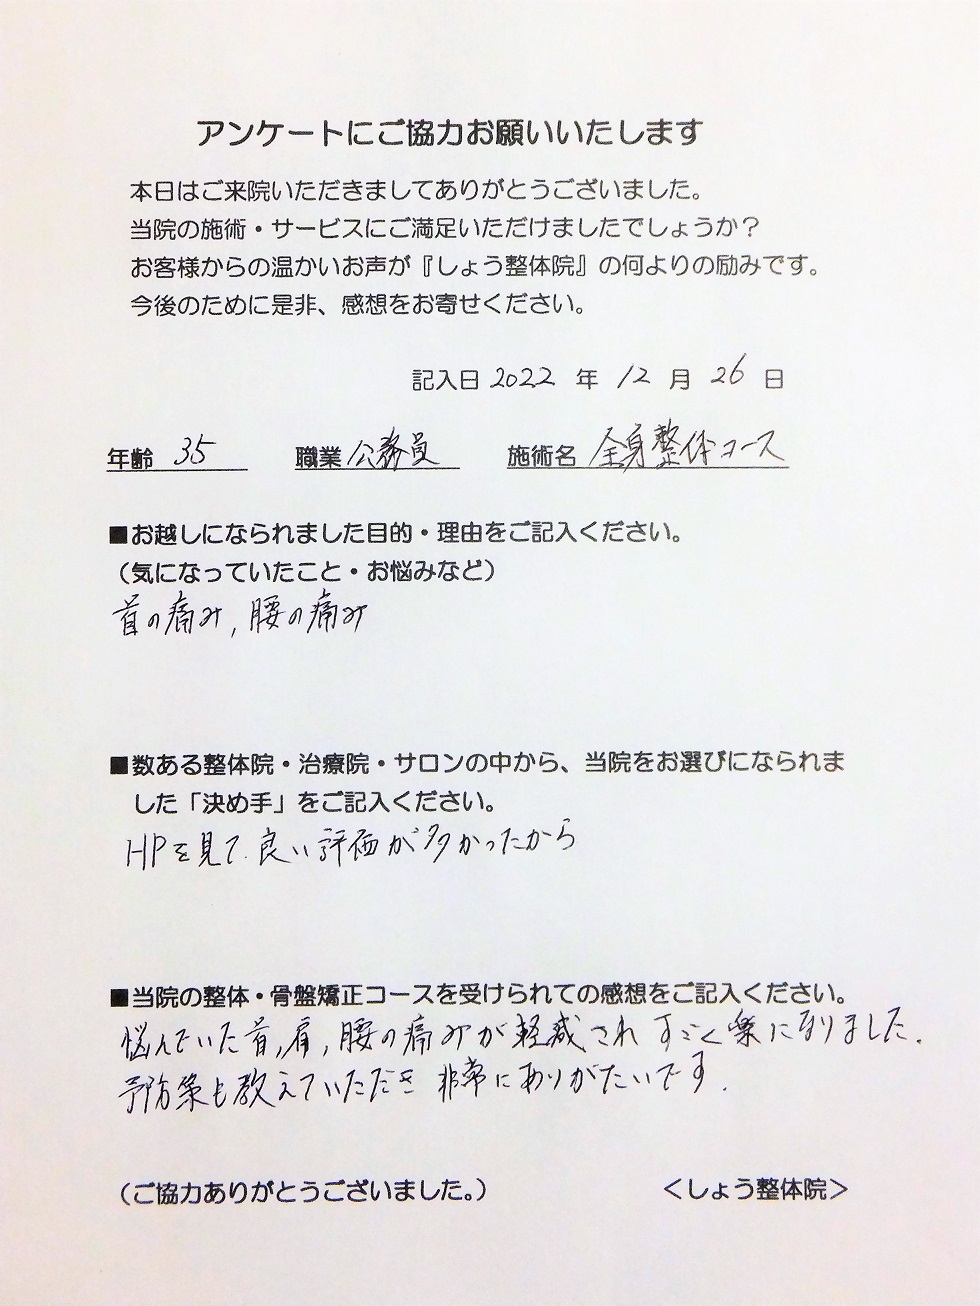 アンケートにご協力お願いいたします
本日はご来院いただきましてありがとうございました。
当院の施術・サービスにご満足いただけましたでしょうか？
お客様からの温かいお声が『しょう整体院』の何よりの励みです。
今後のために是非、感想をお寄せください。
記入日 2022 年 12 月 26 日
年齢 35 職業 公務員 施術名 全身整体コース
■お越しになられました目的・理由をご記入ください。
（気になっていたこと・お悩みなど）
首の痛み, 腰の痛み
■数ある整体院・治療院・サロンの中から、当院をお選びになられま
した「決め手」をご記入ください。
HPを見て. 良い評価が多かったから
■当院の整体・骨盤矯正コースを受けられての感想をご記入ください。
悩んでいた首, 肩, 腰の痛みが軽減され すごく楽になりました.
予防策も教えていただき 非常にありがたいです.
（ご協力ありがとうございました。） ＜しょう整体院＞